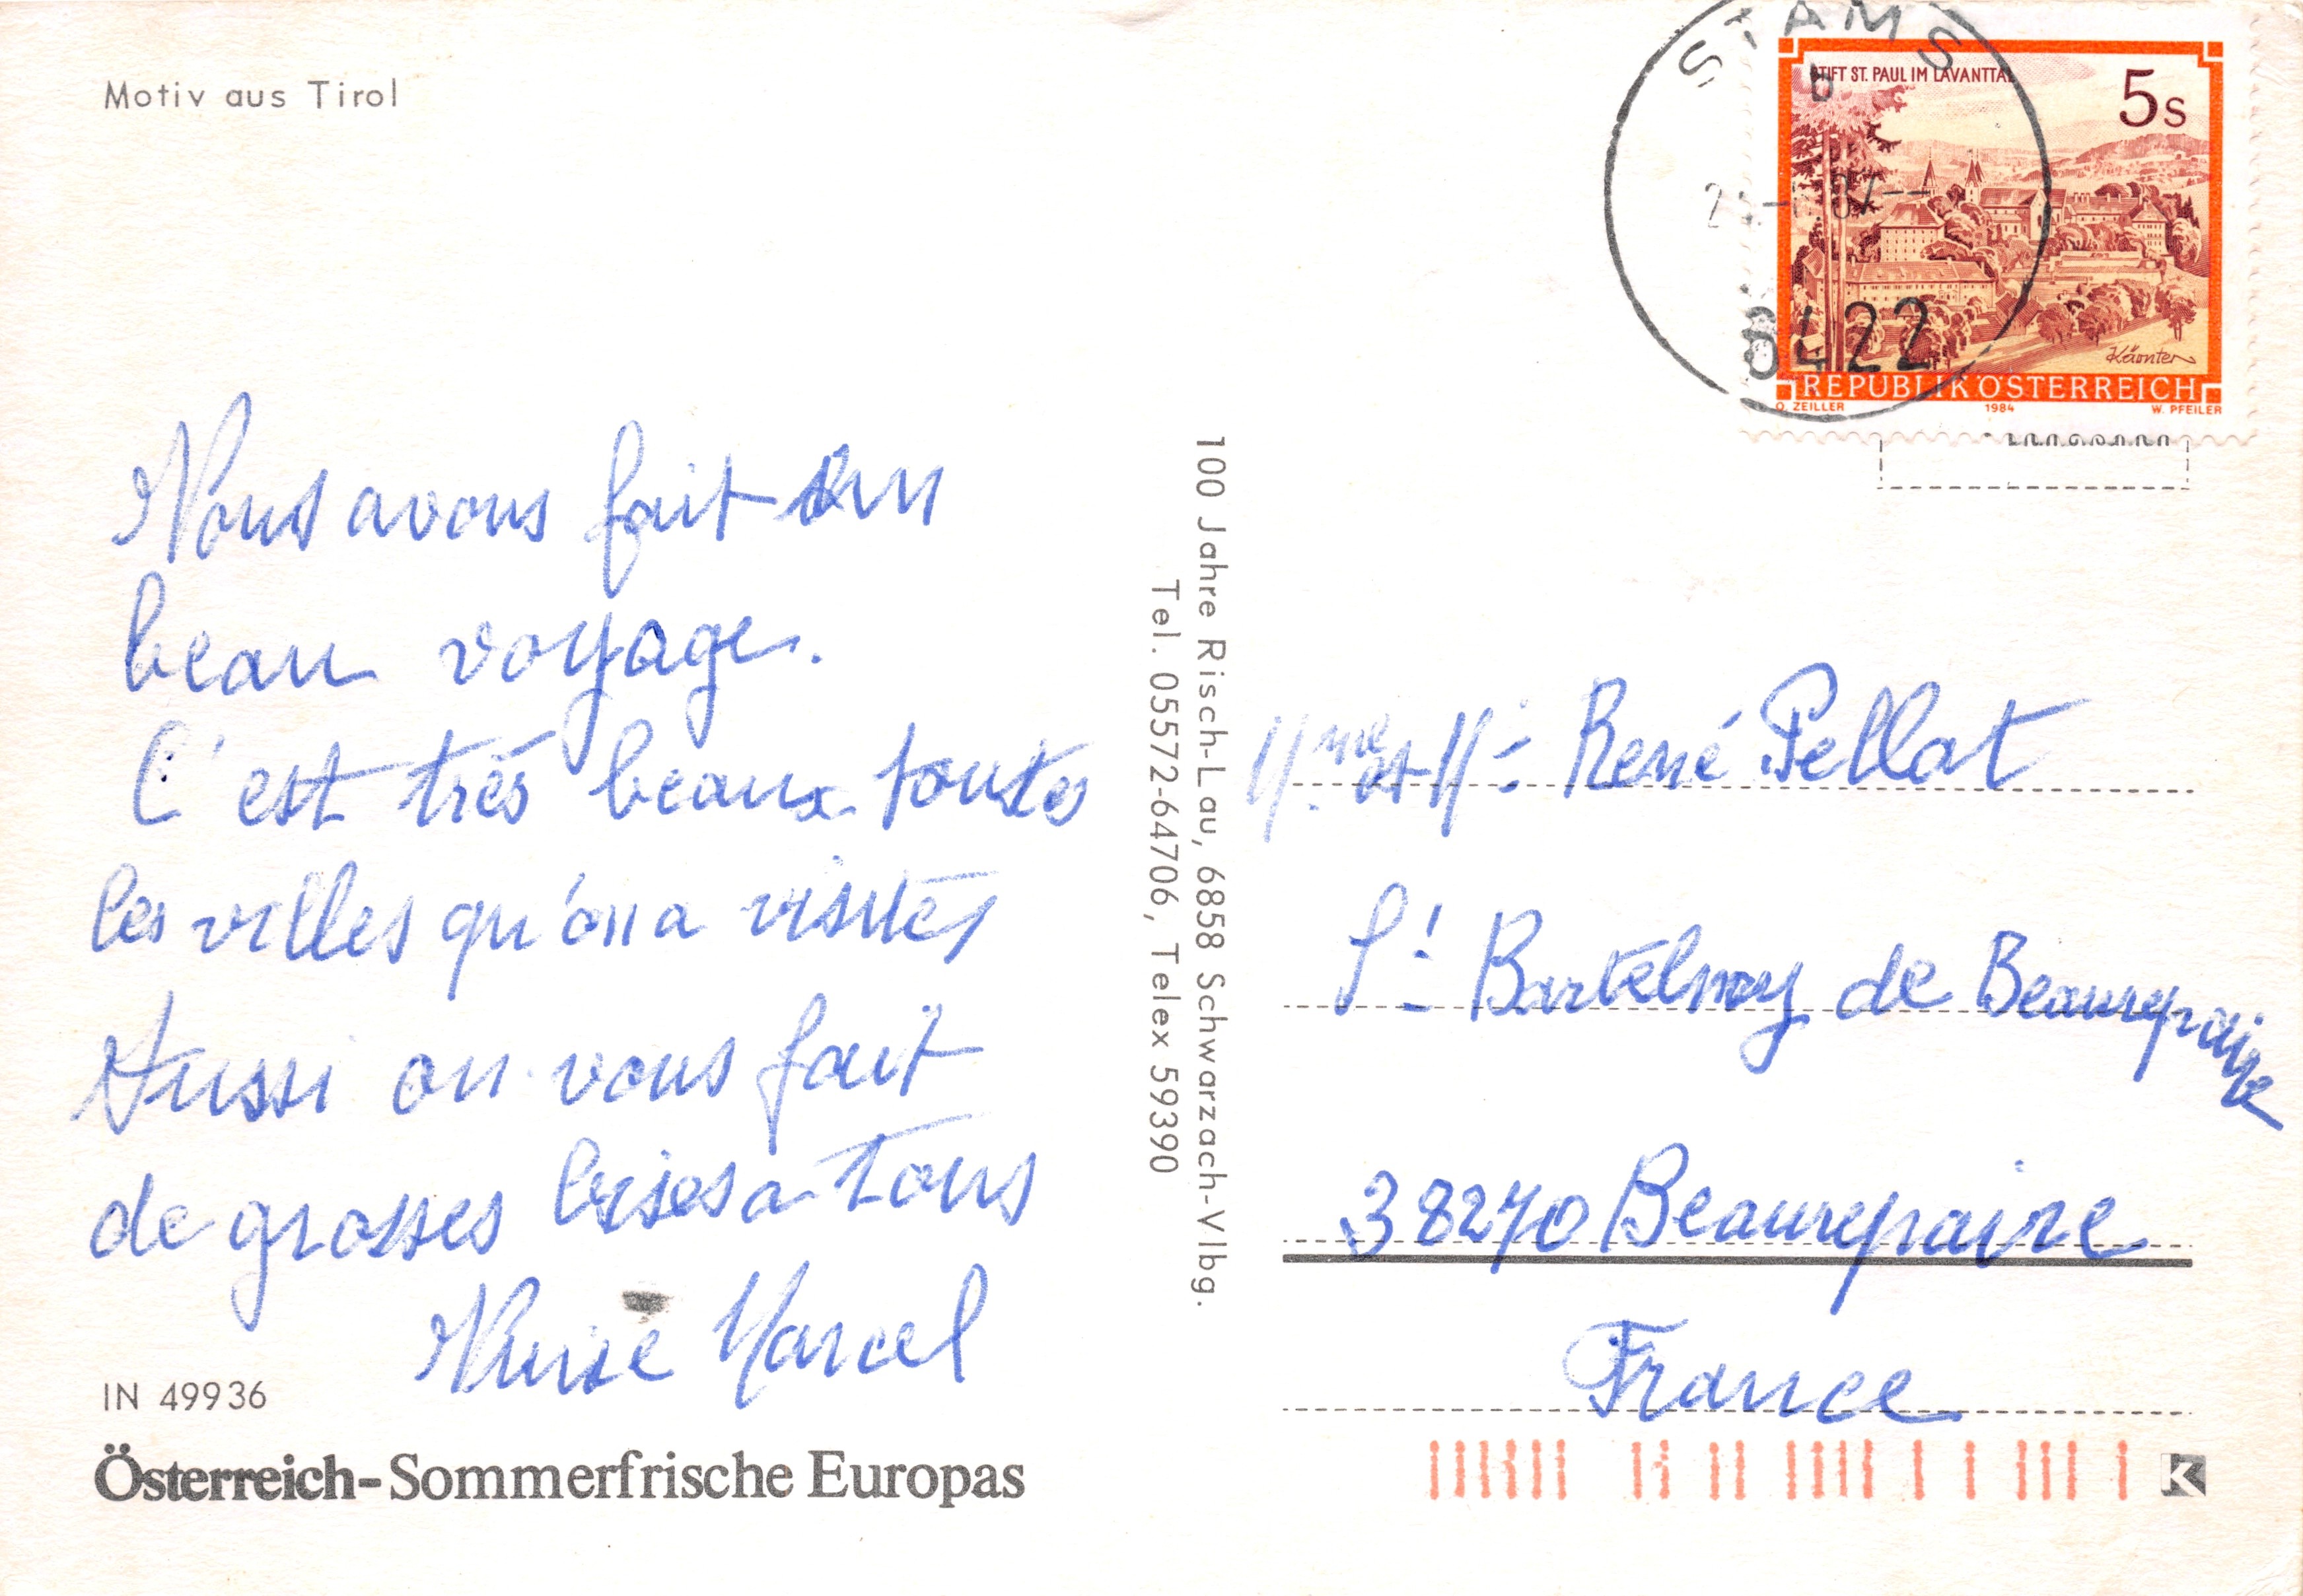 Motiv aus Tirol
Nous avons fait un
beau voyage.
C'est très beaux toutes
les villes qu'on a visités
Aussi on vous fait
de grosses bises a tous
Marcel
IN 49936
Österreich-Sommerfrische Europas
100 Jahre Risch-Lau, 6858 Schwarzach-Vlbg.
Tel. 05572-64706, Telex 59390
STAMS
b
6422
STIFT ST. PAUL IM LAVANTTAL
5s
Kärnten
REPUBLIK ÖSTERREICH
O. ZEILLER 1984 W. PFEILER
Mme et Mr René Pellat
St Bartelmoy de Beaurepaire
38270 Beaurepaire
France